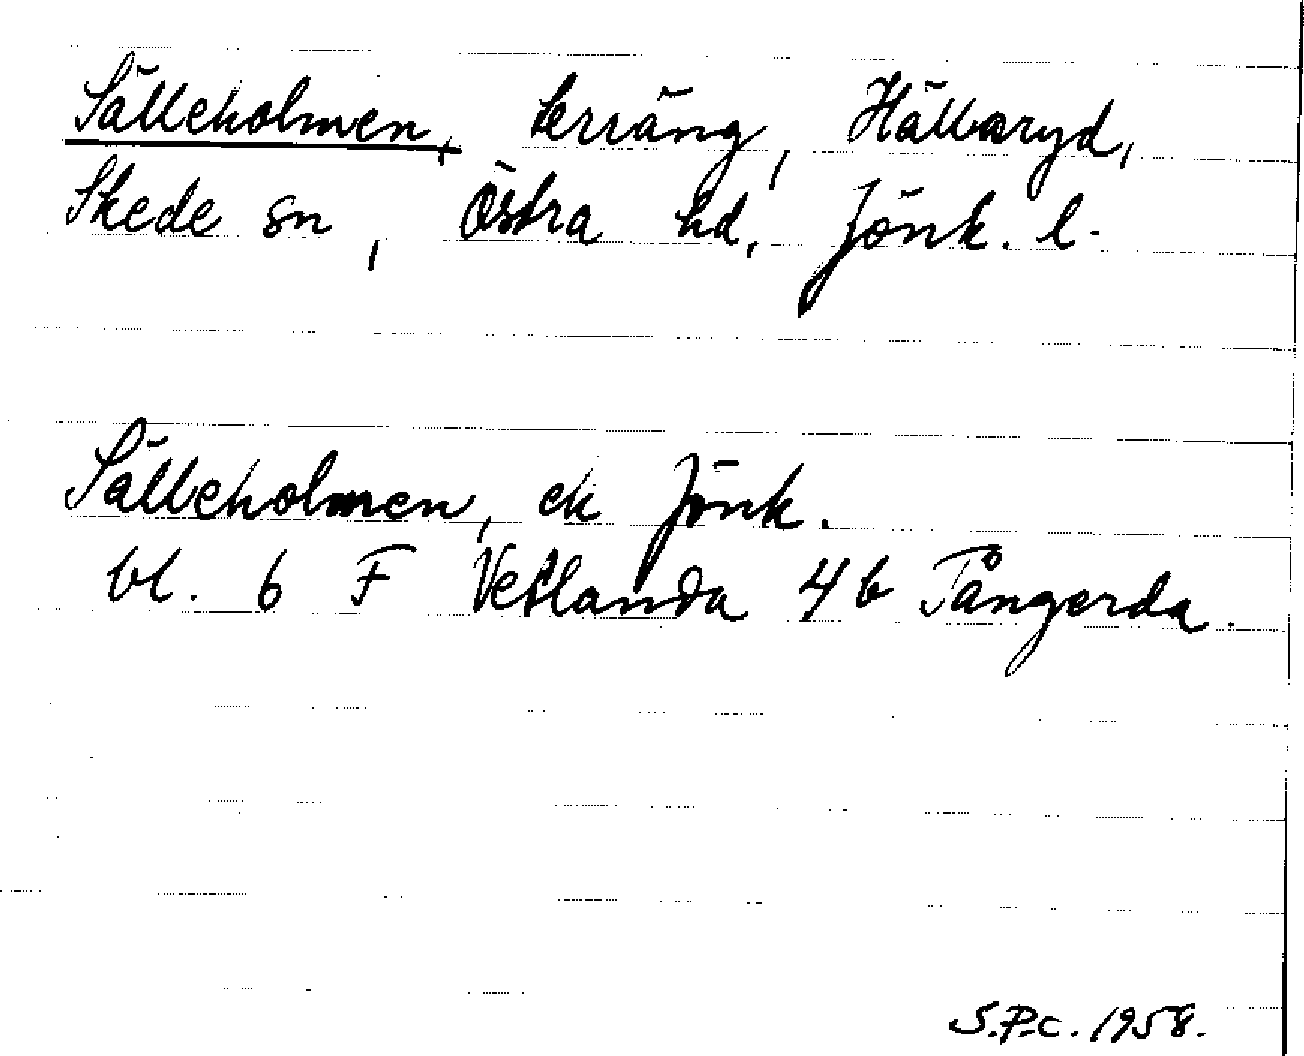 Sälleholmen, terräng, Hällaryd,
Skede sn, Östra hd, Jönk. l.
Sälleholmen, ek Jönk.
bl. 6 F Vetlanda 4 b Tångerda.
S.P.C. 1958.